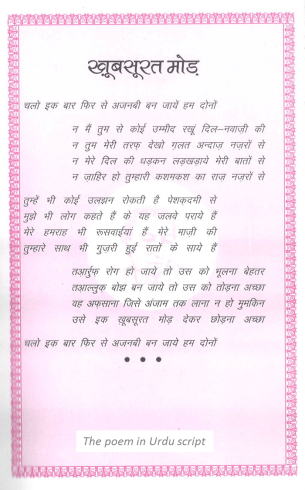 खूबसूरत मोड़
चलो इक बार फिर से अजनबी बन जायें हम दोनों
न मैं तुम से कोई उम्मीद रखूं दिल–नवाज़ी की
न तुम मेरी तरफ़ देखो ग़लत अन्दाज़ नज़रों से
न मेरे दिल की धड़कन लड़खड़ाये मेरी बातों से
न ज़ाहिर हो तुम्हारी कशमकश का राज़ नज़रों से
तुम्हें भी कोई उलझन रोकती है पेशक़दमी से
मुझे भी लोग कहते हैं के यह जलवे पराये हैं
मेरे हमराह भी रूसवाईयां हैं मेरे माज़ी की
तुम्हारे साथ भी गुज़री हुई रातों के साये हैं
तआर्रुफ़ रोग हो जाये तो उस को भूलना बेहतर
तआल्लुक़ बोझ बन जाये तो उस को तोड़ना अच्छा
वह अफ़साना जिसे अंजाम तक लाना न हो मुमकिन
उसे इक खूबसूरत मोड़ देकर छोड़ना अच्छा
चलो इक बार फिर से अजनबी बन जाये हम दोनों
The poem in Urdu script